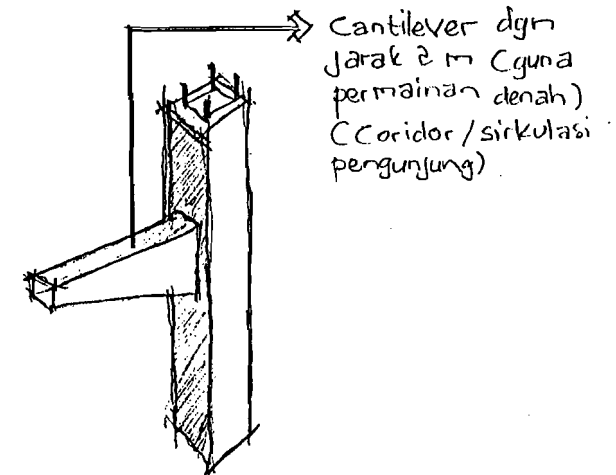 Cantilever dgn
Jarak 2 m (guna
permainan denah)
(Coridor / sirkulasi
pengunjung)